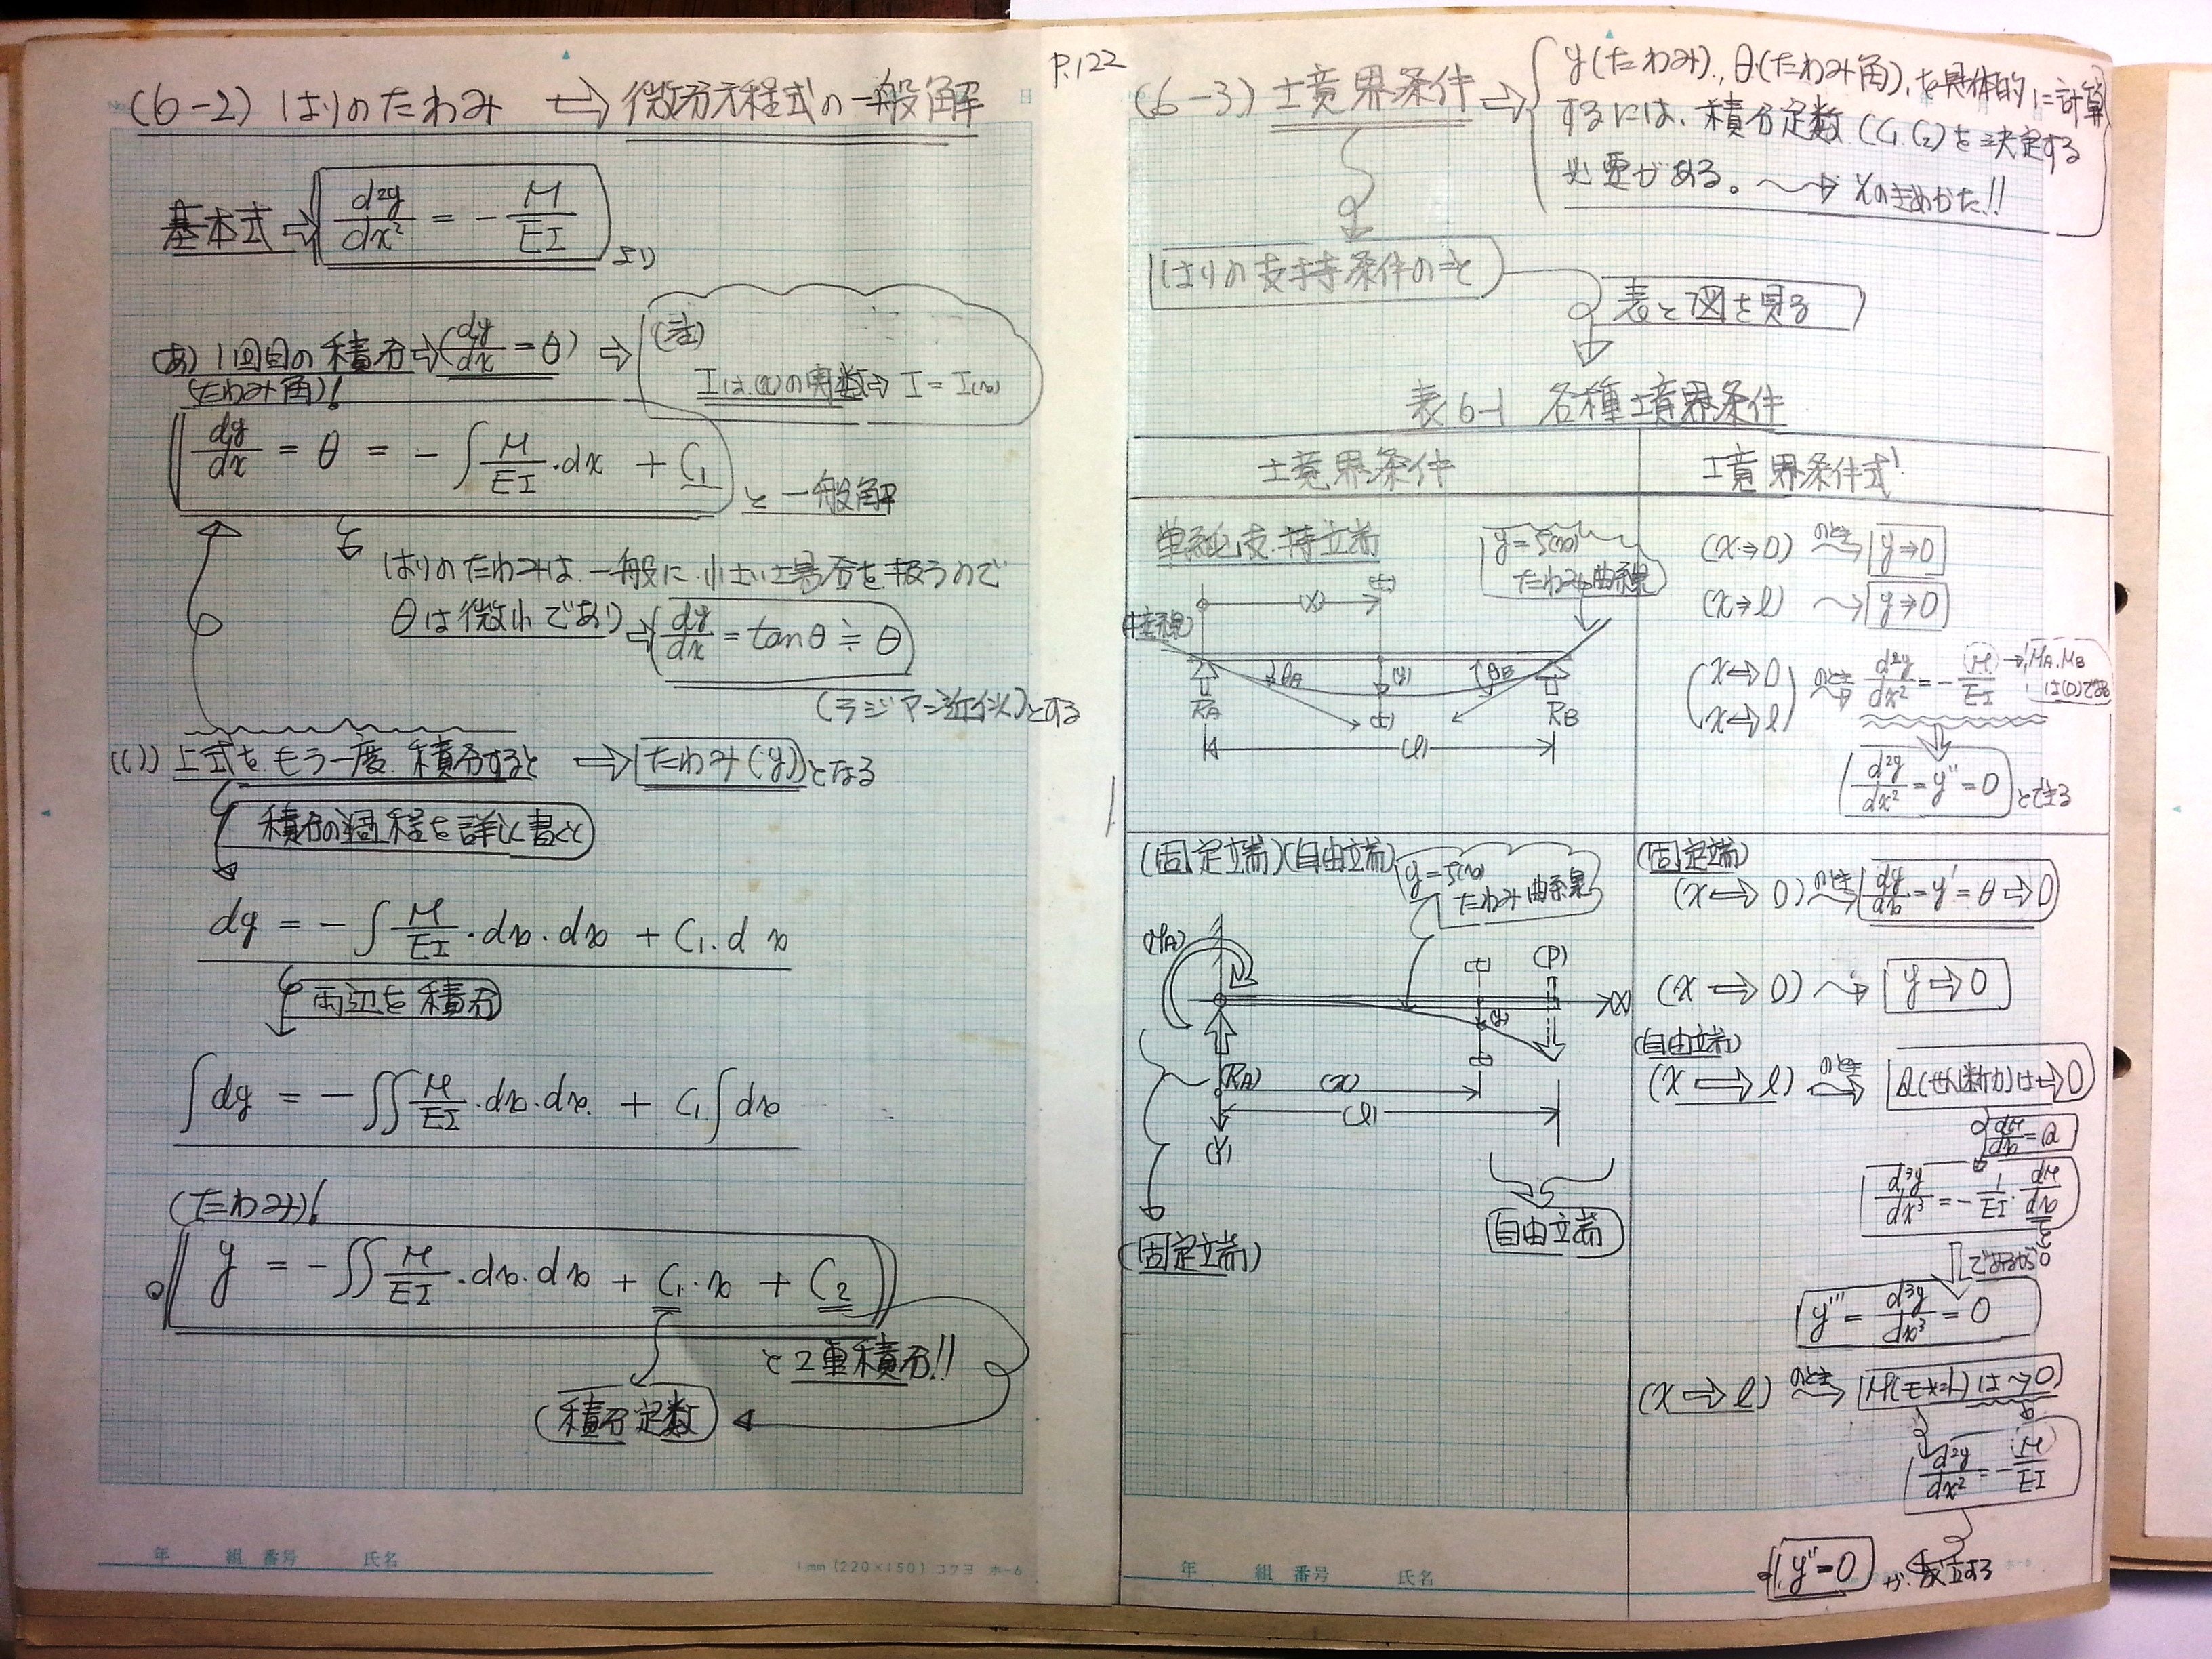 (6-2) はりのたわみ ⇨ 微分方程式の一般解
基本式 ⇨ d²y/dx² = - M/EI より
(あ) 1回目の積分 ⇨ (dy/dx = θ) ⇨
(注)
Iは(x)の関数⇨ I = I(x)
(たわみ角)!
dy/dx = θ = - ∫ M/EI・dx + C₁
と一般解
はりのたわみは、一般に小さい場合を扱うので
θは微小であり → dy/dx = tanθ ≒ θ
(ラジアン近似)とする
(い) 上式をもう一度、積分すると ⇨ たわみ(y)となる
積分の過程を詳しく書くと
dy = - ∫ M/EI・dx・dx + C₁・dx
両辺を積分
∫dy = - ∬ M/EI・dx・dx + C₁∫dx
(たわみ)!
y = - ∬ M/EI・dx・dx + C₁・x + C₂
と2重積分!!
(積分定数)
P.122
(6-3) 境界条件 ⇨
y(たわみ)、θ(たわみ角)、を具体的に計算
するには、積分定数(C₁.C₂)を決定する
必要がある。 〜→ そのきめかた!!
はりの支持条件のこと
表と図を見る
表6-1 各種境界条件
境界条件
境界条件式
単純支持端
y=f(x)
たわみ曲線
(接線)
(x)
θA
(y)
θB
RA
RB
(l)
(x⇒0) のとき y⇒0
(x⇒l) 〜→ y⇒0
(x⇔0
x⇔l) のとき d²y/dx² = - M/EI → MA.MB
は(0)である
d²y/dx² = y'' = 0 とできる
(固定端)(自由端)
y=f(x)
たわみ曲線
(MA)
(P)
(x)
(y)
(RA)
(x)
(l)
(Y)
(固定端)
自由端
(固定端)
(x⇔0) のとき dy/dx = y' = θ ⇒ 0
(x⇒0) 〜→ y⇒0
(自由端)
(x⇒l) のとき Q(せん断力)は→0
dM/dx = Q
d³y/dx³ = - 1/EI・dM/dx
0
であるから
y''' = d³y/dx³ = 0
(x⇒l) のとき M(モーメント)は→0
d²y/dx² = - M/EI
y''=0 が成立する
年 組 番号 氏名
1mm (220×150) コクヨ ホ-6
年 組 番号 氏名